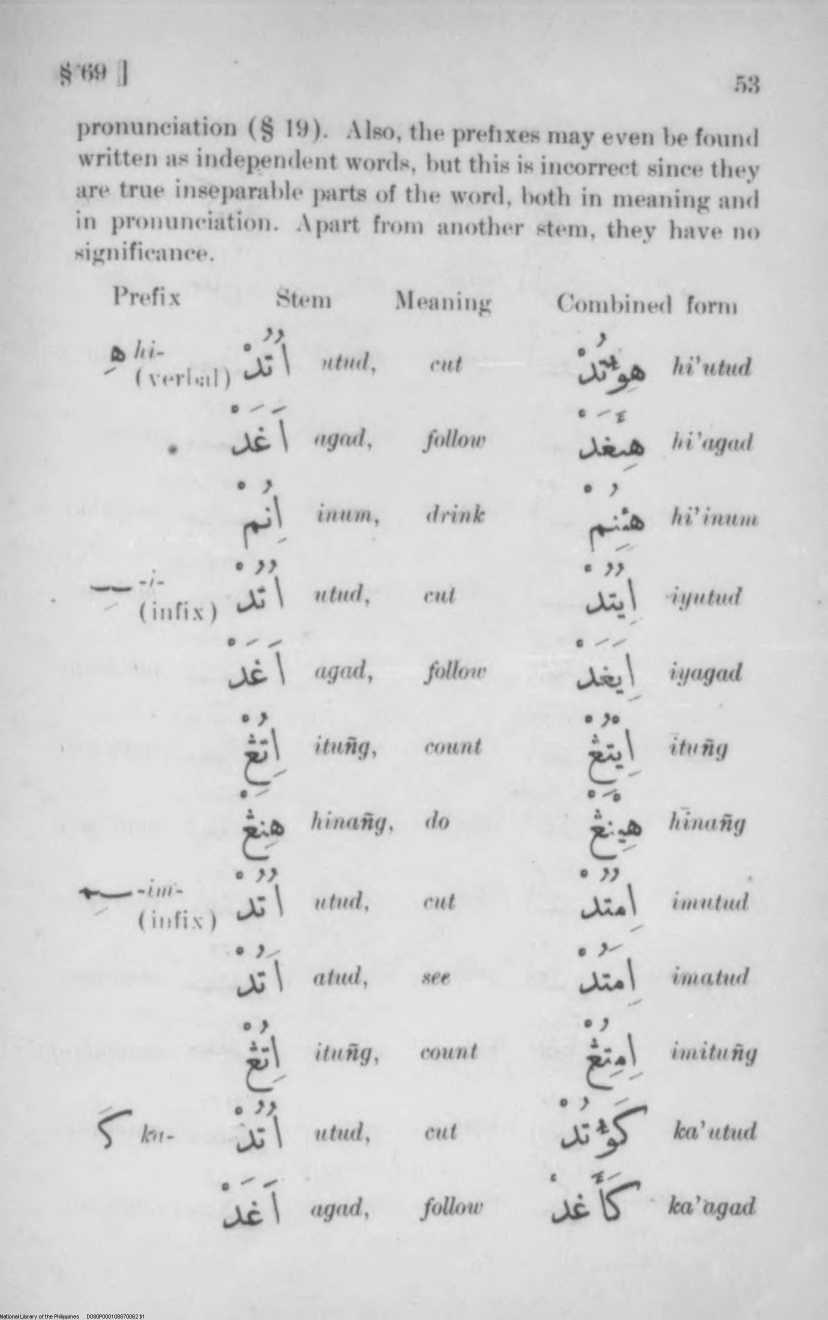 § 69 ]
53
pronunciation (§ 19). Also, the prefixes may even be found
written as independent words, but this is incorrect since they
are true inseparable parts of the word, both in meaning and
in pronunciation. Apart from another stem, they have no
significance.
Prefix Stem Meaning Combined form
هِ hi- (verbal) اُتُدْ utud, cut هِوءُتُدْ hi'utud
اَغَدْ agad, follow هِئَغَدْ hi'agad
اِنُمْ inum, drink هِئِنُمْ hi'inum
-i- (infix) اُتُدْ utud, cut اِيُتُدْ iyutud
اَغَدْ agad, follow اِيَغَدْ iyagad
اِتُڠْ ituñg, count اِيتُڠْ ītuñg
هِنَڠْ hinañg, do هِينَڠْ hīnañg
-im- (infix) اُتُدْ utud, cut اِمُتُدْ imutud
اَتُدْ atud, see اِمَتُدْ imatud
اِتُڠْ ituñg, count اِمِتُڠْ imituñg
كَ ka- اُتُدْ utud, cut كَوءُتُدْ ka'utud
اَغَدْ agad, follow كَأَغَدْ ka'agad
National Library of the Philippines